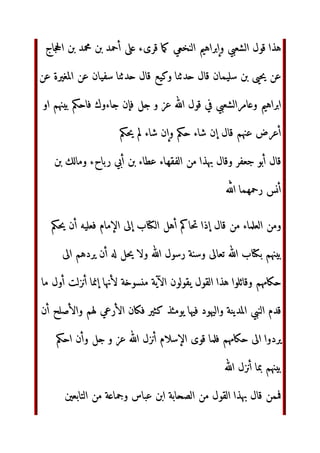 هذا قول الشعبي وإبراهيم النخعي كما قرىء على أحمد بن محمد بن الحجاج
عن يحيى بن سليمان قال حدثنا وكيع قال حدثنا سفيان عن المغيرة عن
ابراهيم وعامرالشعبي في قول الله عز و جل فإن جاءوك فاحكم بينهم او
أعرض عنهم قال إن شاء حكم وإن شاء لم يحكم
قال أبو جعفر وقال بهذا من الفقهاء عطاء بن أبي رباح، ومالك بن
أنس رحمهما الله
ومن العلماء من قال إذا تحاكم أهل الكتاب إلى الإمام فعليه أن يحكم
بينهم بكتاب الله تعالى وسنة رسول الله ولا يحل له أن يردهم الى
حكامهم وقائلوا هذا القول يقولون الآية منسوخة لأنها إنما أنزلت أول ما
قدم النبي المدينة واليهود فيها يومئذ كثير فكان الأرعي لهم والأصلح أن
يردوا الى حكامهم فلما قوى الإسلام أنزل الله عز و جل وأن احكم
بينهم بما أنزل الله
فممن قال بهذا القول من الصحابة ابن عباس وجماعة من التابعين